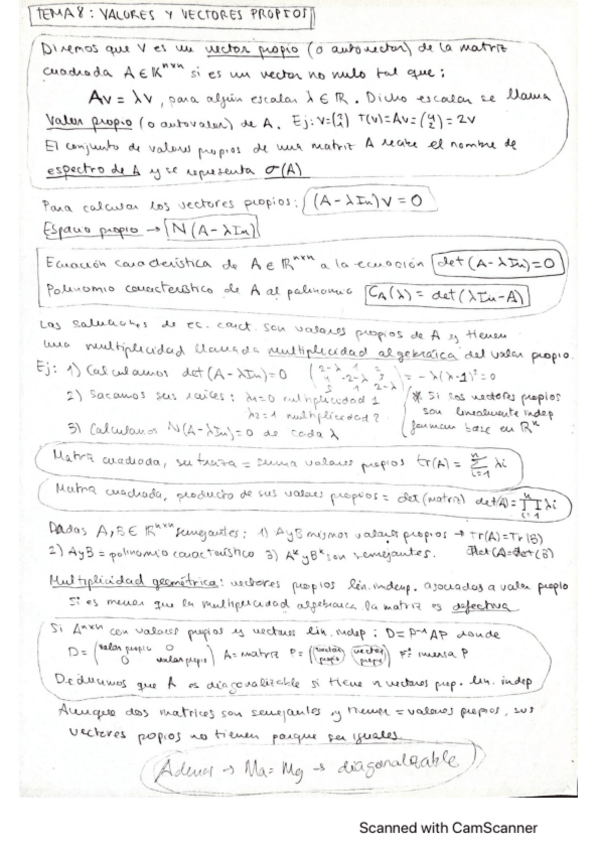 TEMA 8: VALORES Y VECTORES PROPIOS
Diremos que v es un vector propio (o autovector) de la matriz
cuadrada A ∈ K^nxn si es un vector no nulo tal que:
Av = λv, para algún escalar λ ∈ R. Dicho escalar se llama
Valor propio (o autovalor) de A. Ej: v=(1 2) T(v)=Av=(4 2)=2v
El conjunto de valores propios de una matriz A recibe el nombre de
espectro de A y se representa σ(A)
Para calcular los vectores propios: (A-λIn)v=0
Espacio propio → N(A-λIn)
Ecuación característica de A ∈ R^nxn a la ecuación det(A-λIn)=0
Polinomio característico de A al polinomio CA(λ)=det(λIn-A)
Las soluciones de ec. caract. son valores propios de A y tienen
una multiplicidad llamada multiplicidad algebráica del valor propio.
Ej: 1) Calculamos det(A-λIn)=0 = -λ(λ-1)²=0
2) Sacamos sus raíces: λ1=0 multiplicidad 1
λ2=1 multiplicidad 2
* Si los vectores propios
son linealmente indep
forman base en R^n
3) Calculamos N(A-λIn)=0 de cada λ
Matriz cuadrada, su traza = suma valores propios tr(A)=∑ i=1 n λi
Matriz cuadrada, producto de sus valores propios = det(matriz) det(A)=∏ i=1 n λi
Dadas A,B ∈ R^nxn semejantes: 1) A y B mismos valores propios → Tr(A)=Tr(B)
2) A y B = polinomio característico 3) A^k y B^k son semejantes. Det(A)=Det(B)
Multiplicidad geométrica: vectores propios lin. indep. asociados a valor propio
Si es menor que la multiplicidad algebraica la matriz es defectiva
Si A^nxn con valores propios y vectores lin. indep: D=P^-1AP donde
D=(valor propio 0 0 valor propio) A=matriz P=(vector propio vector propio) P^-1: inversa P
Deducimos que A es diagonalizable si tiene n vectores prop. lin. indep
Aunque dos matrices son semejantes y tienen = valores propios, sus
vectores propios no tienen porque ser iguales
Además → Ma=Mg → diagonalizable
Scanned with CamScanner